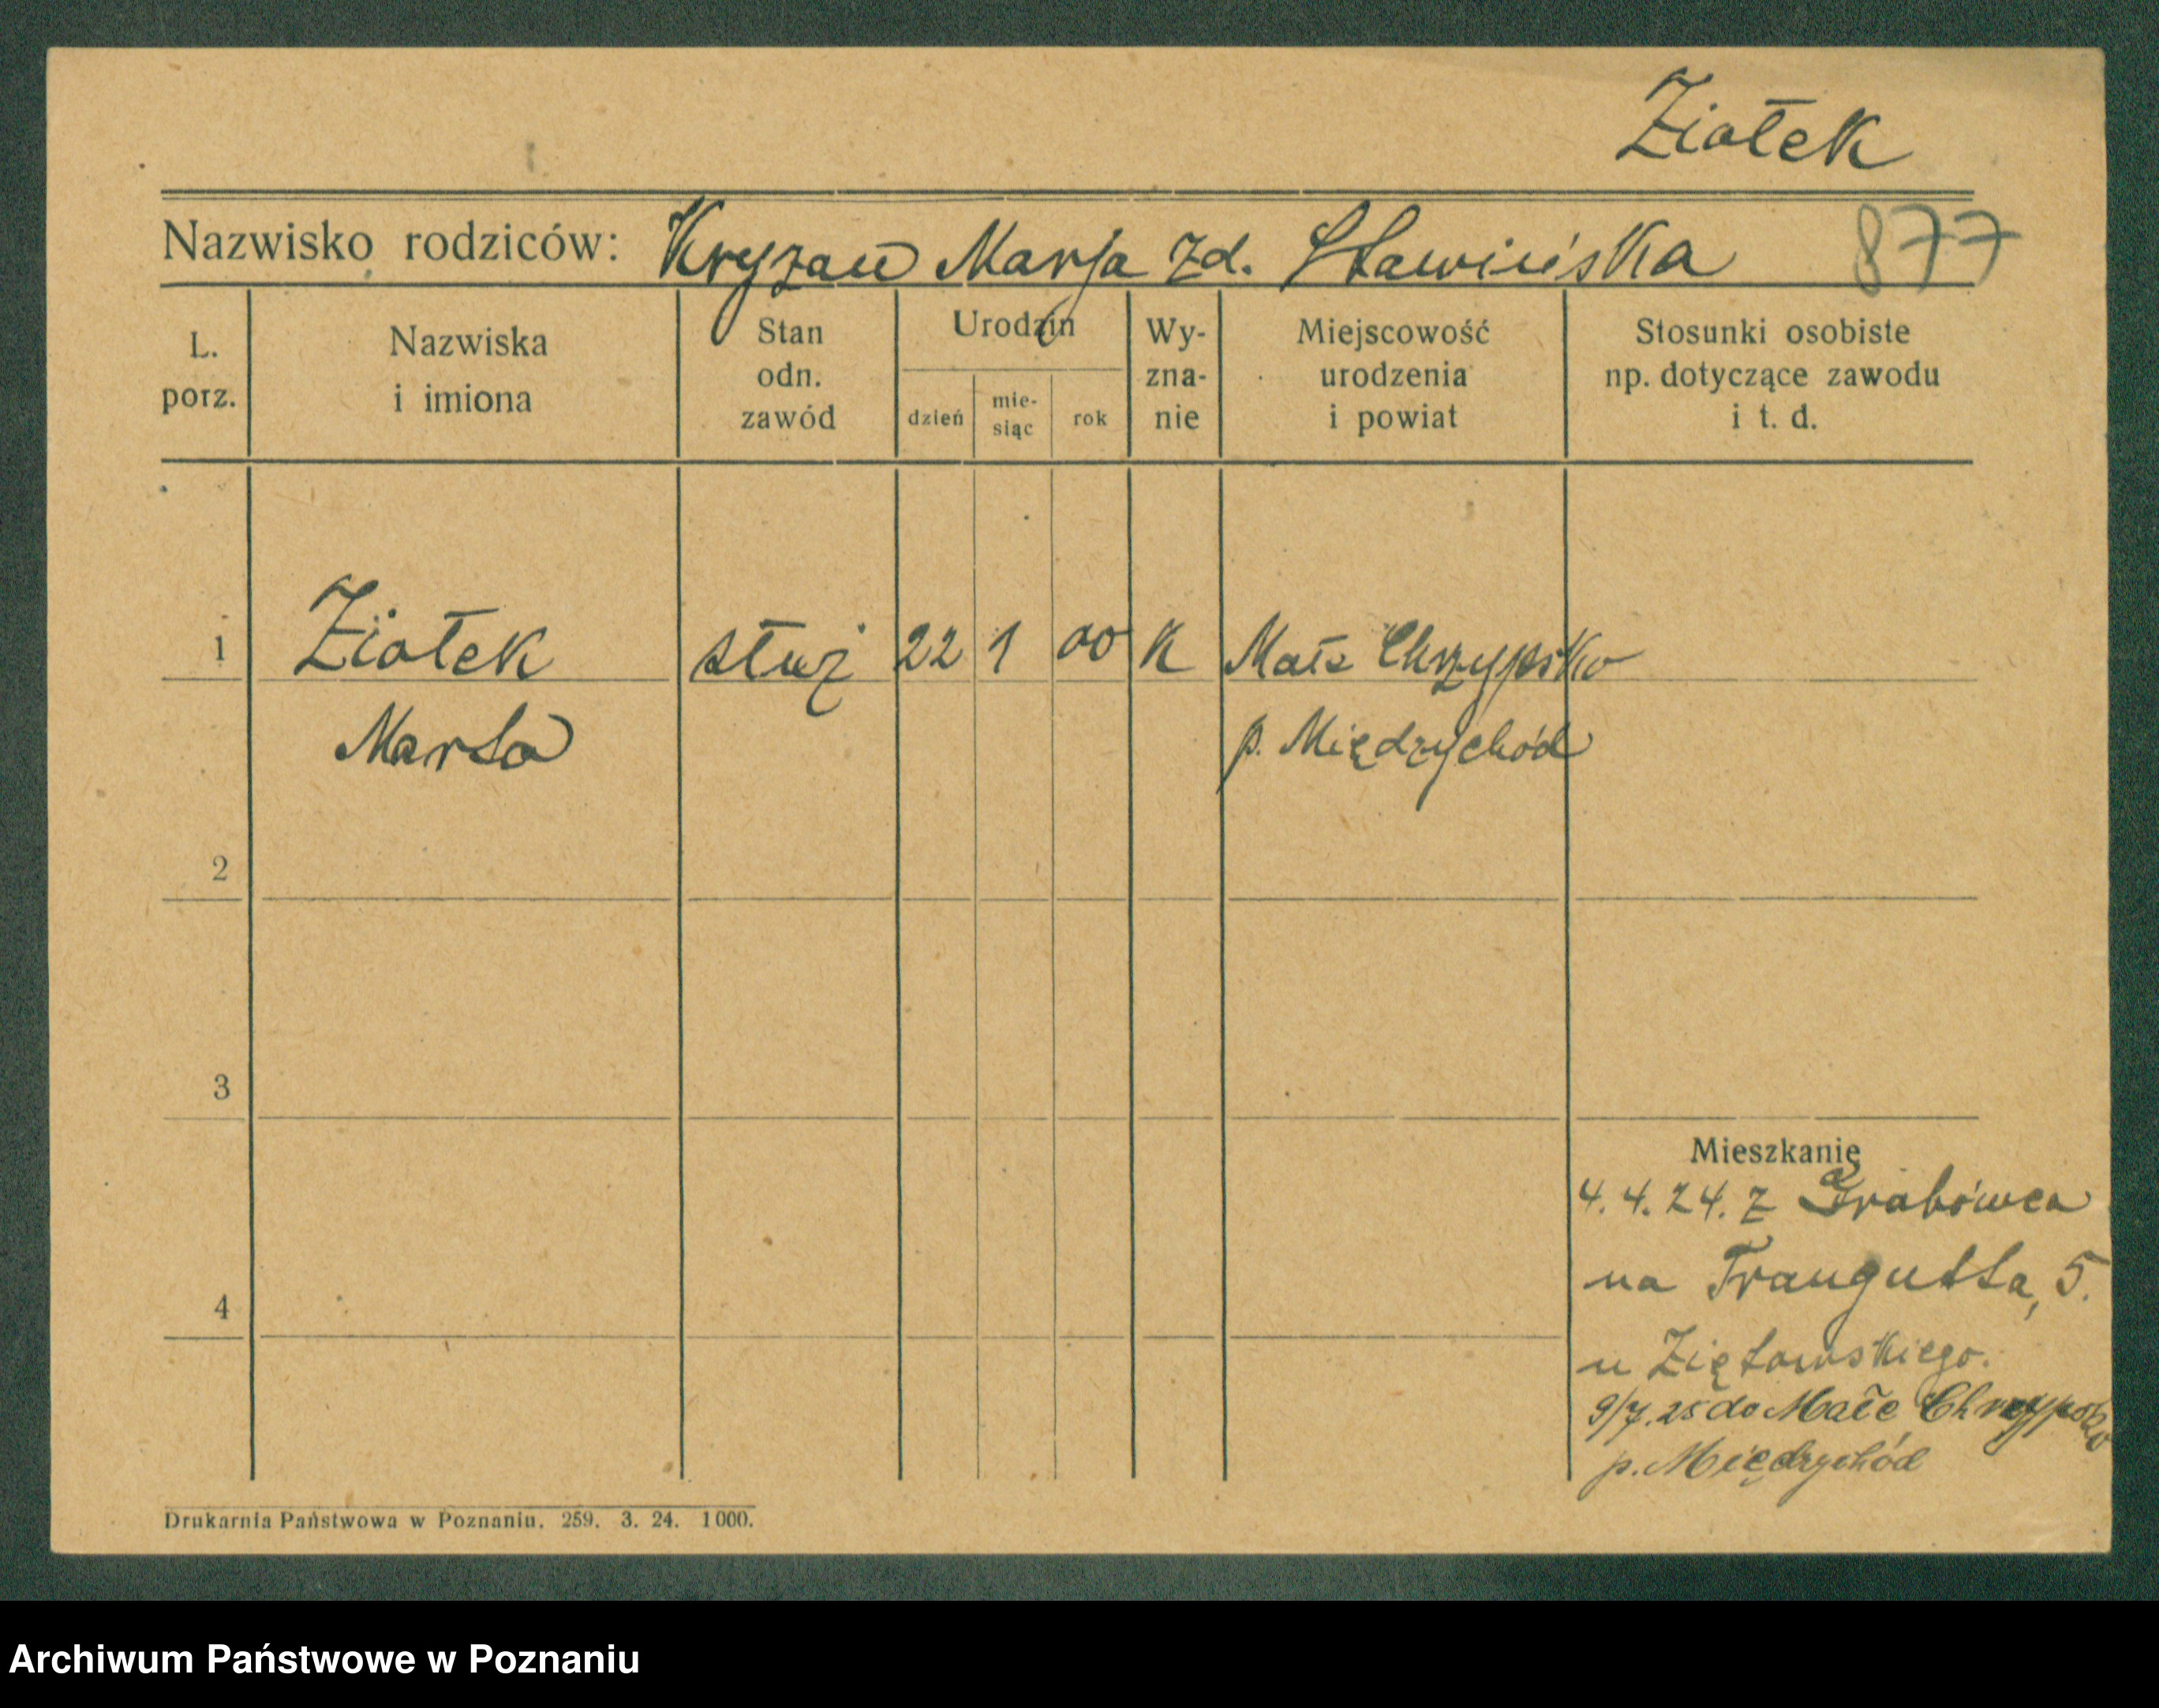 Ziołek
Nazwisko rodziców: Kryzan Marja zd. Sławińska 877
L. porz.
Nazwiska i imiona
Stan odn. zawód
Urodzin
dzień
mie-siąc
rok
Wy-zna-nie
Miejscowość urodzenia i powiat
Stosunki osobiste np. dotyczące zawodu i t. d.
1 Ziołek służ 22 1 00 K Małe Chrzypsko
Marta p. Międzychód
2
3
4
Mieszkanie
4.4.24. z Grabówca
na Traugutta, 5.
u Ziętowskiego.
9/7.25 do Małe Chrzypsko
p. Międzychód
Drukarnia Państwowa w Poznaniu. 259. 3. 24. 1000.
Archiwum Państwowe w Poznaniu